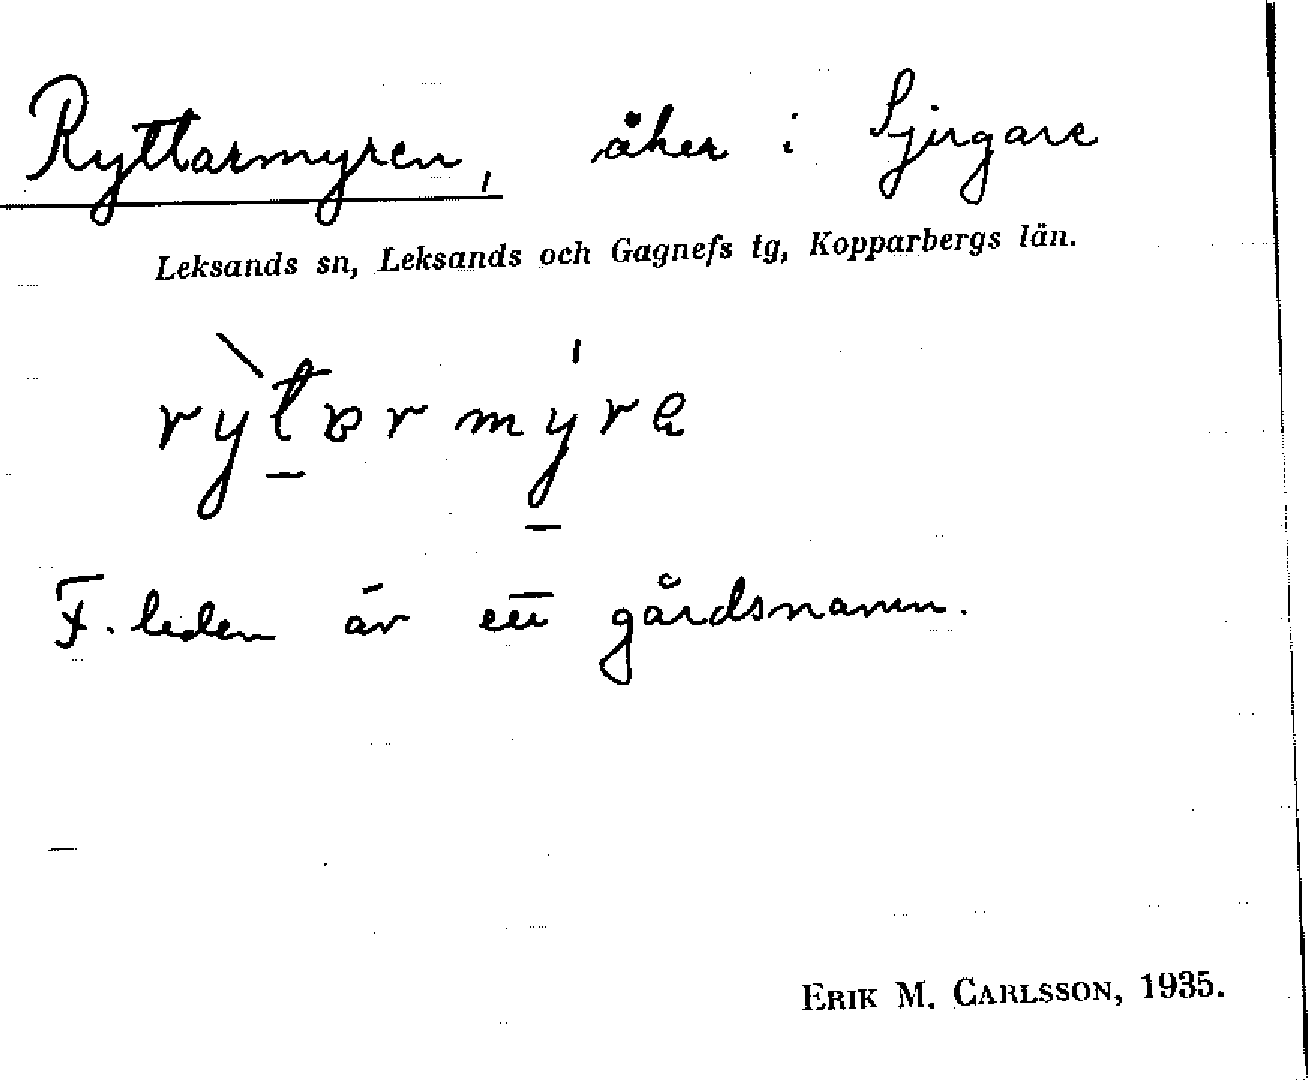 Ryttarmyren, åker i Sjugare
Leksands sn, Leksands och Gagnefs tg, Kopparbergs län.
F. leden är ett gårdsnamn.
ERIK M. CARLSSON, 1935.